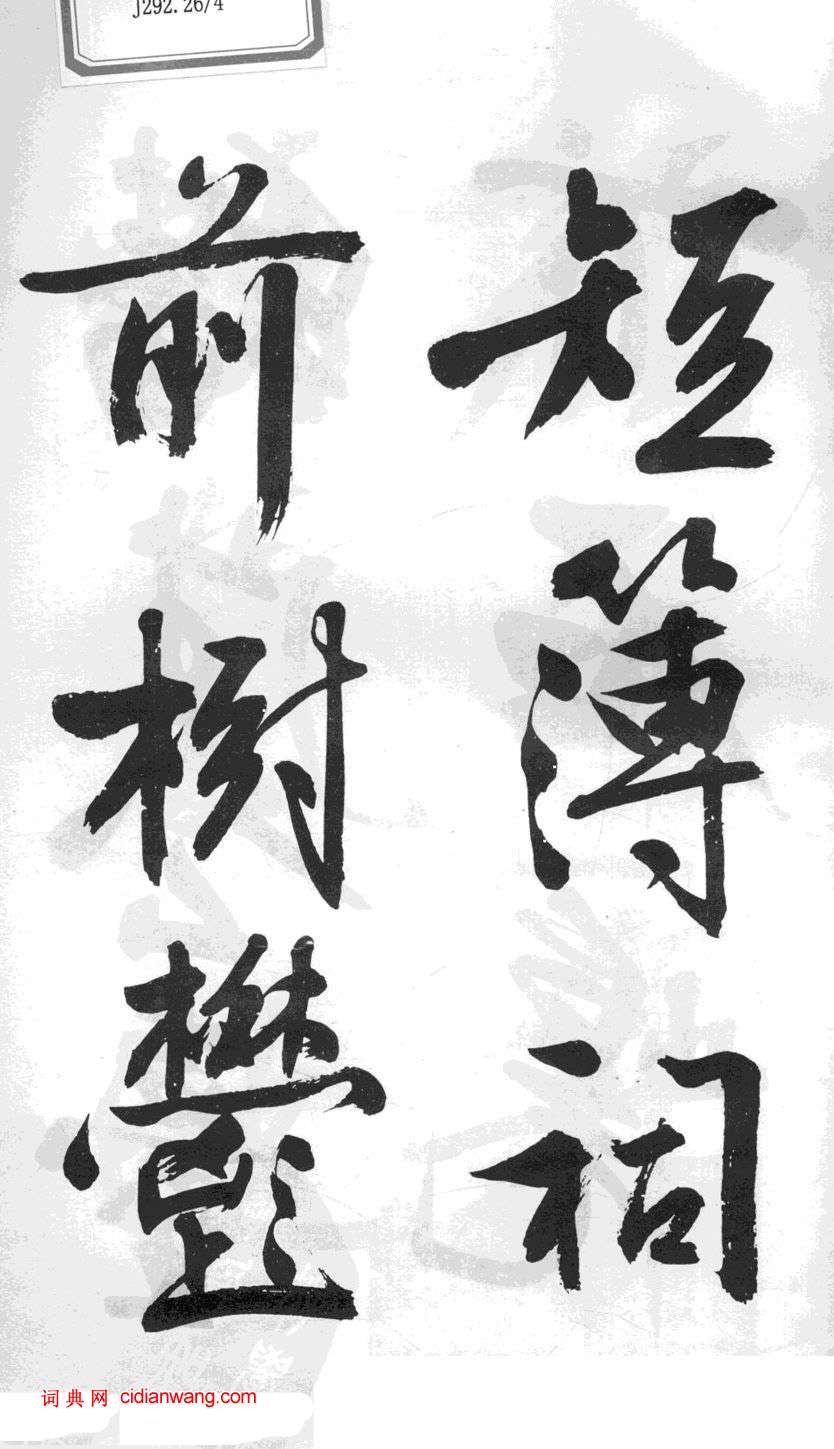 J292.26/4
短簿祠
前樹鬱
词典网 cidianwang.com